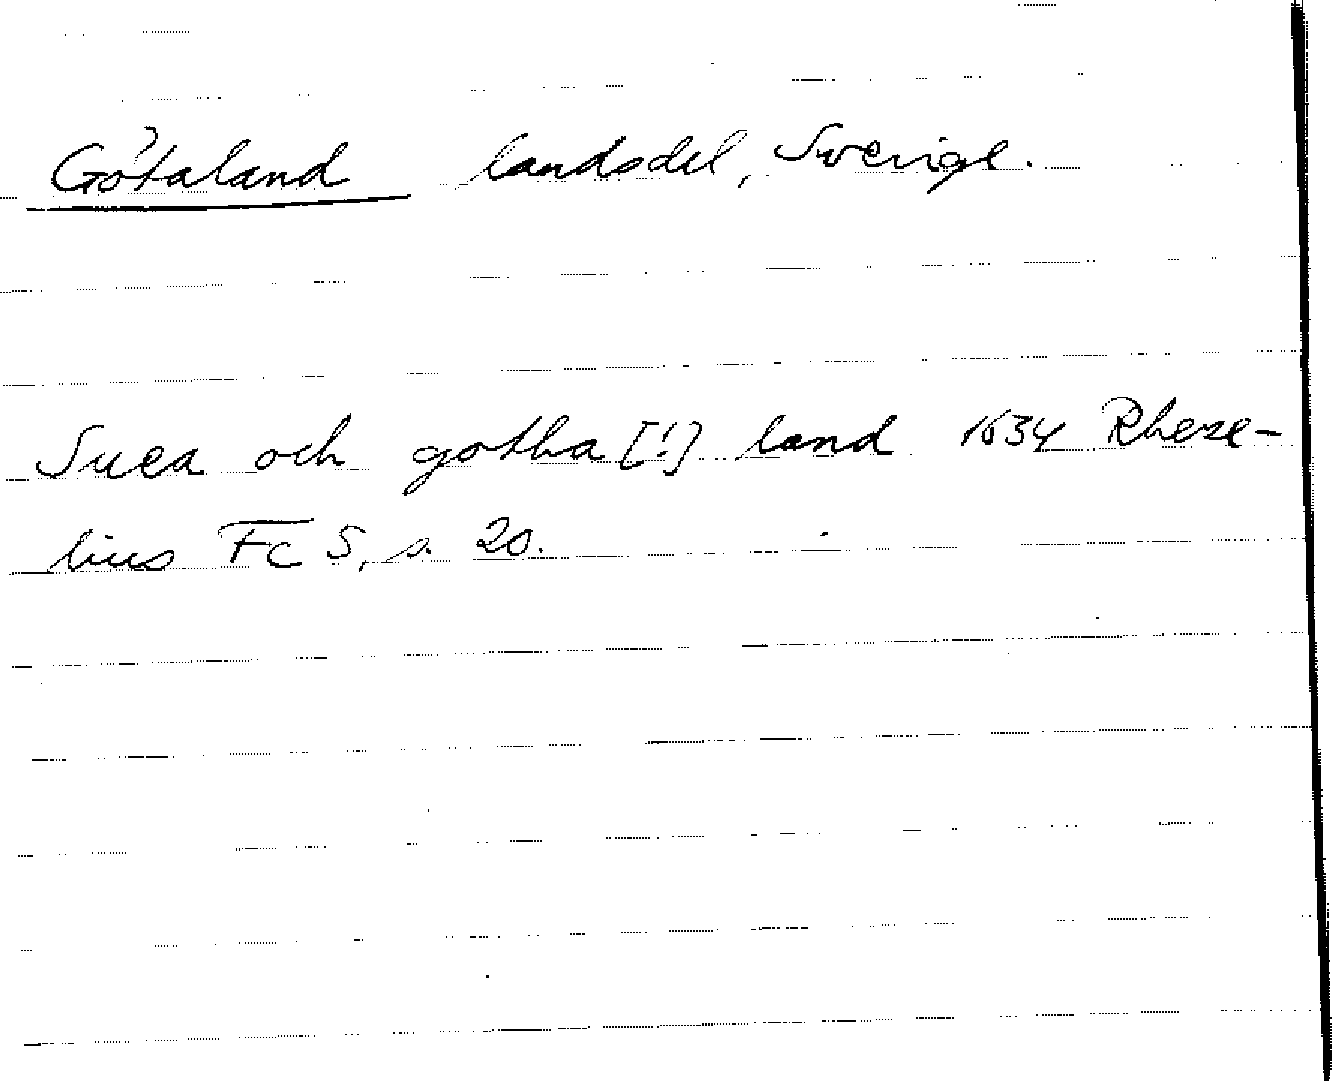 Götaland landsdel, Sverige.
Suea och gotha [!] land 1634 Rheze-
lius Fc 5, s. 20.